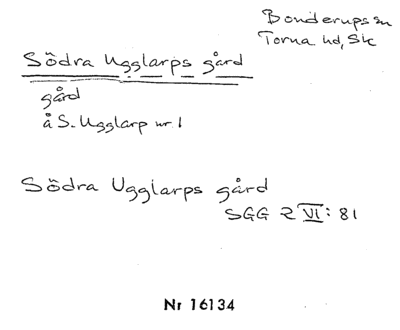 Bonderups sn
Torna hd, Sk
Södra Ugglarps gård
gård
å S. Ugglarp nr 1
Södra Ugglarps gård
SGG 2 VI: 81
Nr 16134